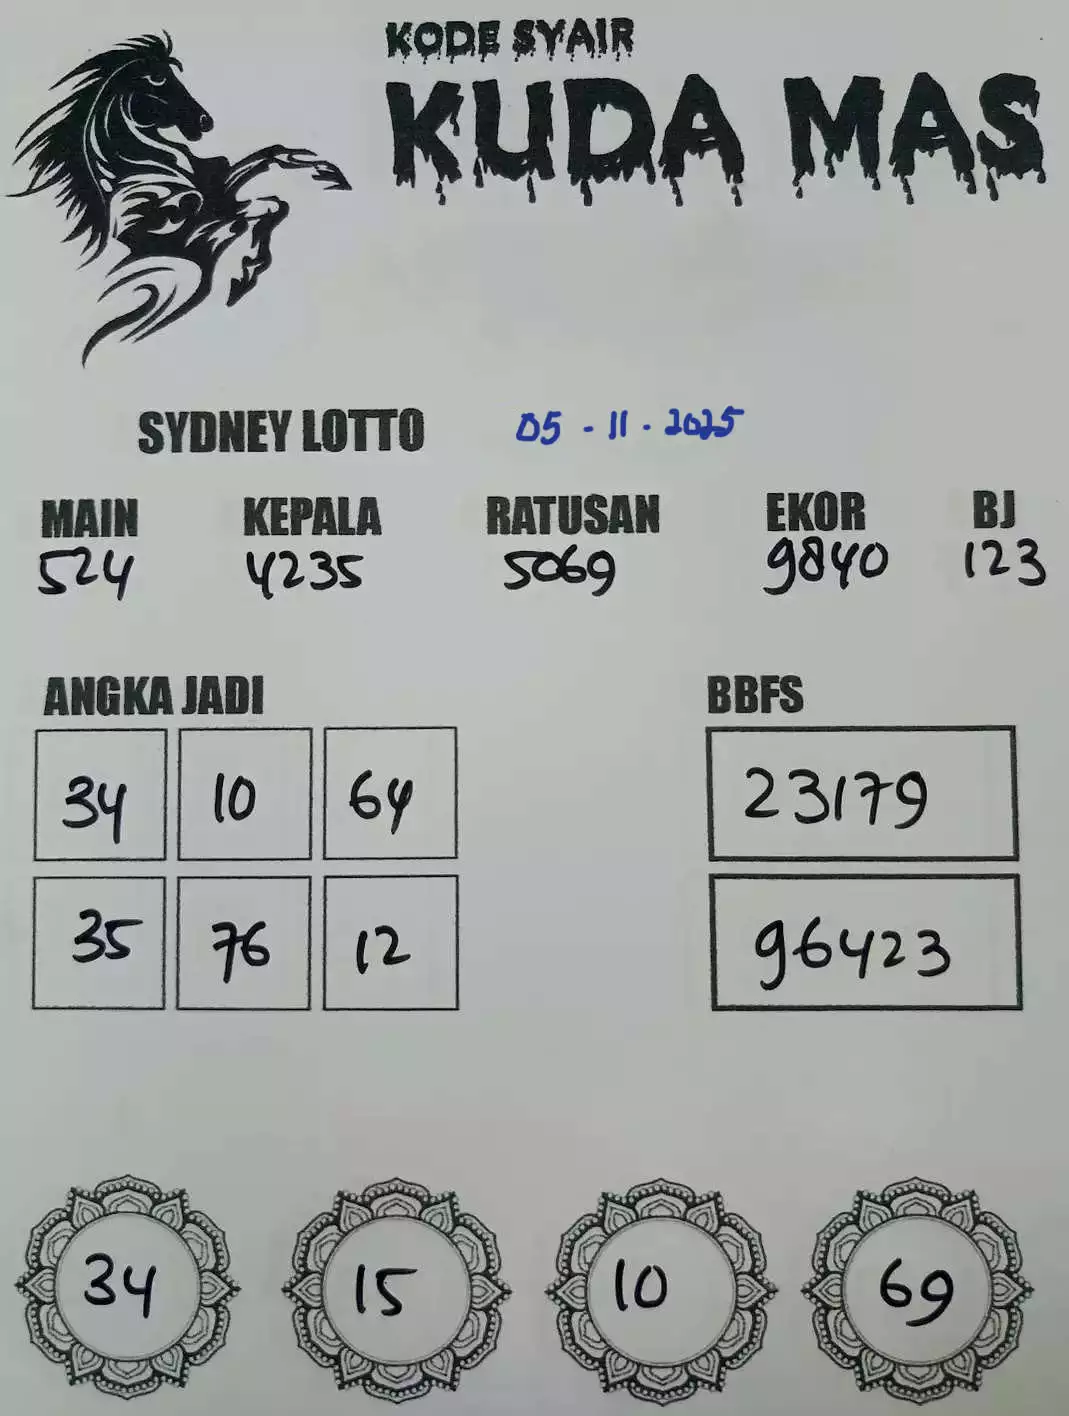 KODE SYAIR
KUDA MAS
SYDNEY LOTTO 05-11-2025
MAIN KEPALA RATUSAN EKOR BJ
524 4235 5069 9840 123
ANGKA JADI BBFS
34 10 64 23179
35 76 12 96423
34 15 10 69